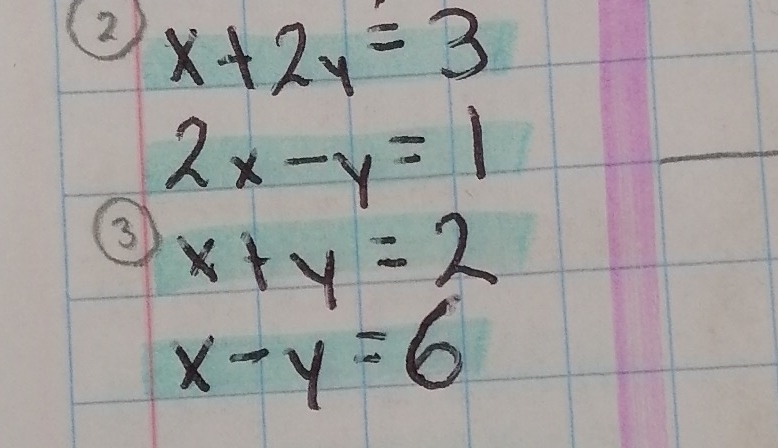 ② x+2y=3
2x-y=1
③ x+y=2
x-y=6